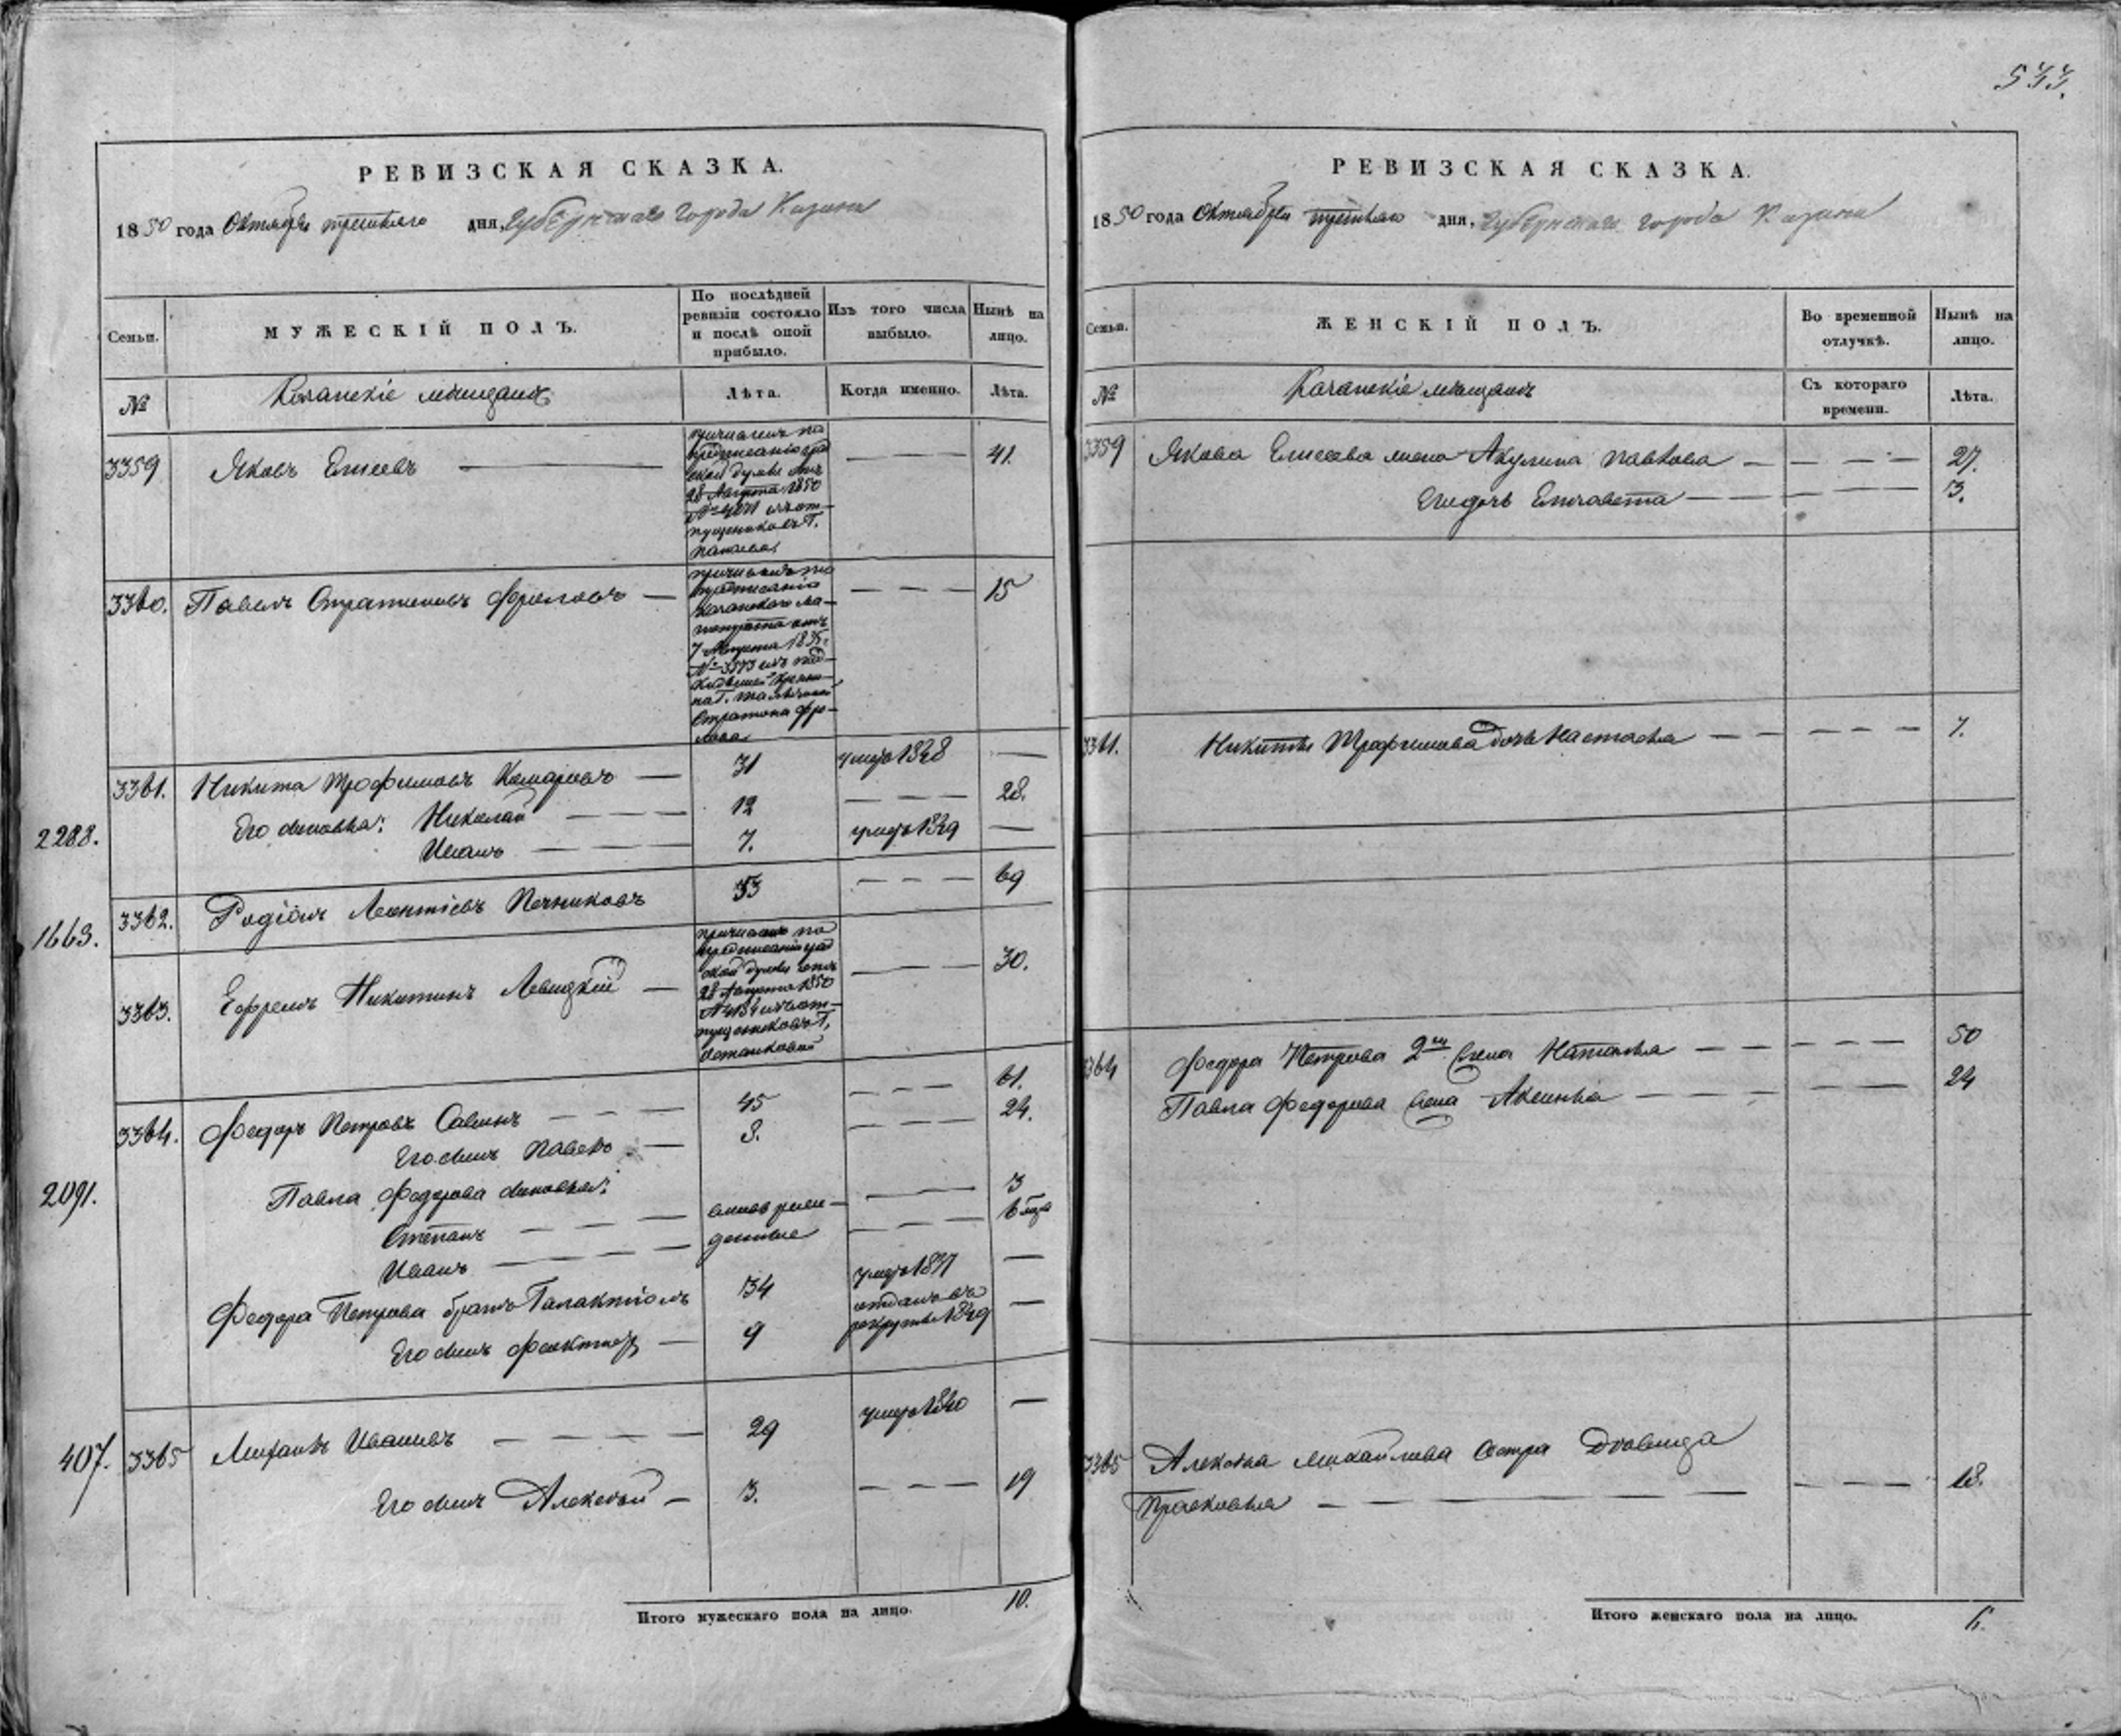 533.
РЕВИЗСКАЯ СКАЗКА.
1850 года Октября третьяго дня, Губернскаго города Казани
Семьи.
МУЖЕСКІЙ ПОЛЪ.
По послѣдней ревизіи состояло и послѣ оной прибыло.
Изъ того числа выбыло.
Нынѣ на лицо.
№
Казанскіе мѣщане
Лѣта.
Когда именно.
Лѣта.
3359 Яковъ Елисеевъ — 41.
причисленъ по
предписанію град
ской думы отъ
28 Августа 1850
№ изъ от-
пущениковъ Г.
3360. Павелъ Стратоновъ Фроловъ — 15
причисленъ по
предписанію
Казанскаго Ма-
гистрата отъ
7 Августа 1835.
№ 3573 изъ
Стратона Фро-
лова
3361. Никита Трофимовъ Комаровъ — 31 умеръ 1848 —
2288. Его сыновья: Николай — 12 — 28.
Иванъ — 7. умеръ 1849 —
1663. 3362. Родіонъ Леонтіевъ Печниковъ 53 — 69
3363. Ефремъ Никитинъ Левицкій — 30.
причисленъ по
предписанію град
ской думы отъ
28 Августа 1850
№ изъ от-
пущениковъ Г.
3364. Федоръ Петровъ Савинъ — 45 — 61.
Его сынъ Павелъ — 8. — 24.
2091. Павла Федорова сыновья:
Степанъ — вновь рож- — 3
Иванъ — денные — 6 мѣ
Федора Петрова братъ Галактіонъ 34 умеръ 1837 —
Его сынъ — 9 отданъ въ рекруты 1849 —
407. 3365 Михаилъ Ивановъ — 29 умеръ 1840 —
Его сынъ Алексѣй — 3. — 19
Итого мужескаго пола на лицо. 10.
РЕВИЗСКАЯ СКАЗКА.
1850 года Октября третьяго дня, Губернскаго города Казани
Семьи.
ЖЕНСКІЙ ПОЛЪ.
Во временной отлучкѣ.
Нынѣ на лицо.
№
Казанскіе мѣщане
Съ котораго времени.
Лѣта.
3359 Якова Елисеева жена Акулина Павлова — 27.
Ея дочь Елизавета — 3.
3361. Никиты Трофимова дочь Настасья — 7.
3364 Федора Петрова 2я жена Наталья — 50
Павла Федорова жена Аксинья — 24
3365 Алексѣя Михайлова сестра
Прасковья — 18.
Итого женскаго пола на лицо. 6.